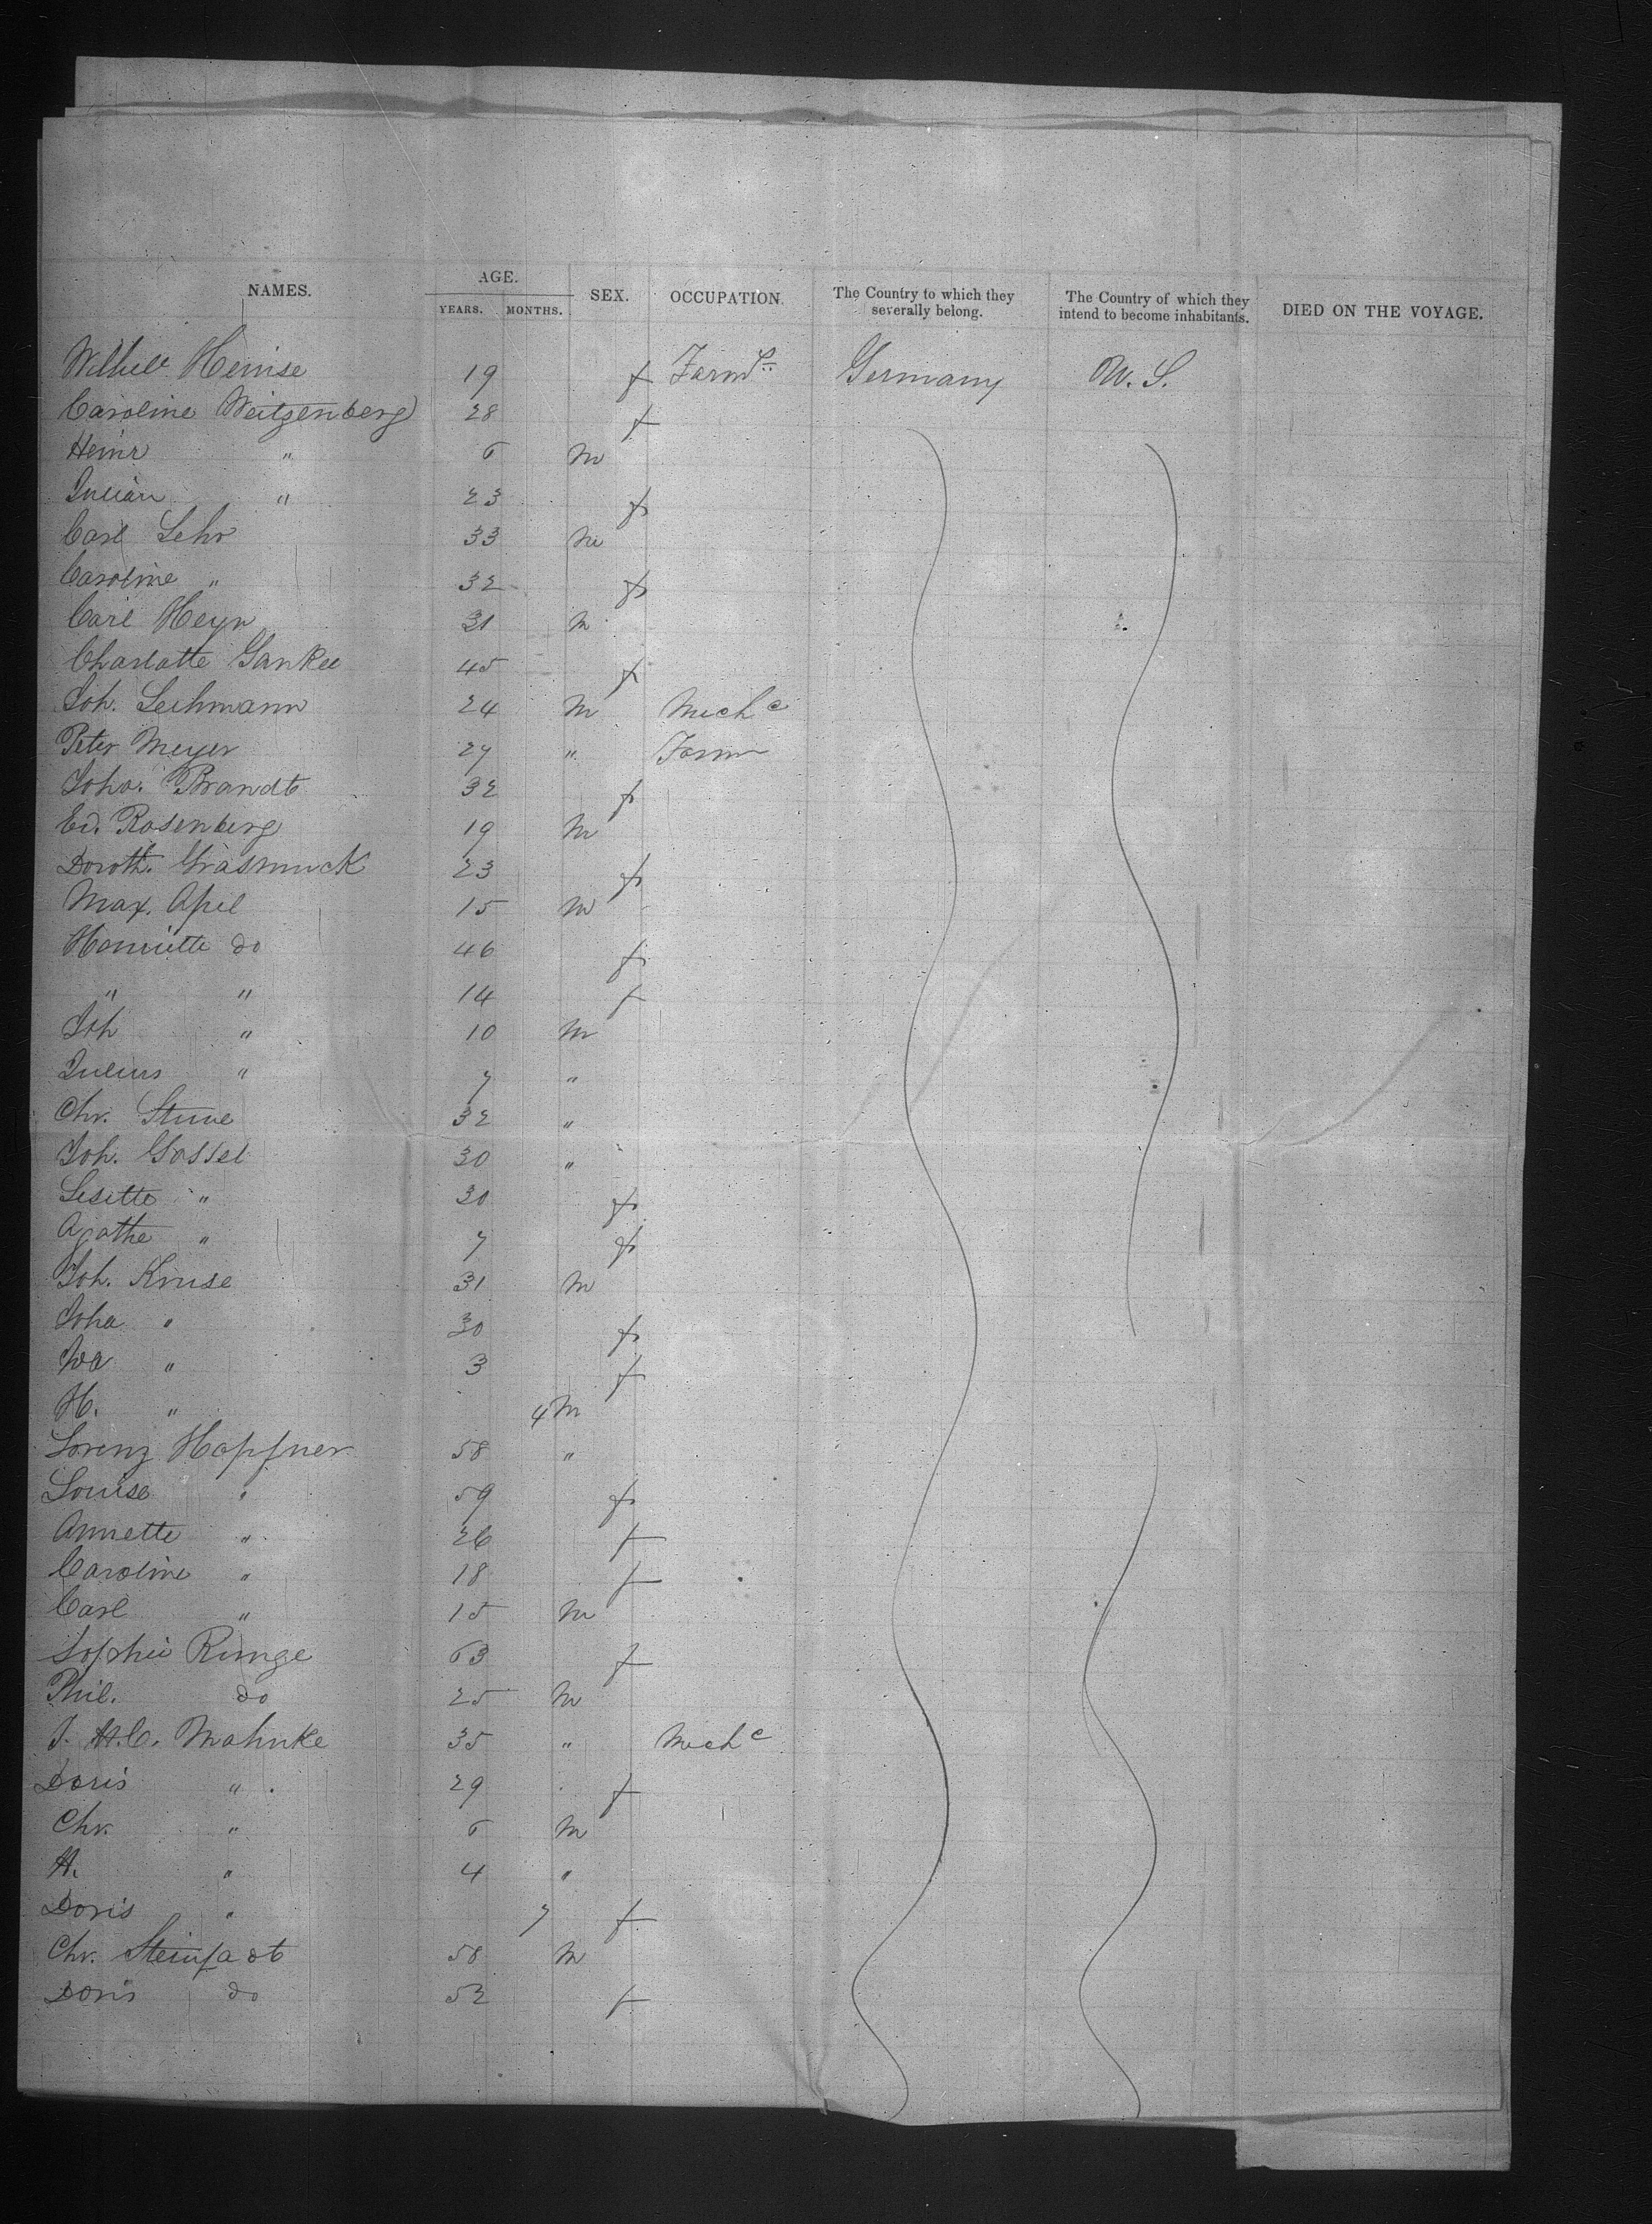 NAMES. AGE. SEX. OCCUPATION. The Country to which they severally belong. The Country of which they intend to become inhabitants. DIED ON THE VOYAGE.
YEARS. MONTHS.
Heinse 19 f Germany U. S.
Caroline Weitzenberg 28 f
Heinr " 6 m
Julian " 23 f
Carl Lehr 33 m
Caroline " 32 f
Carl Heyn 31 m
Charlotte 45 f
Joh. Leihmann 24 m Mechc
Peter Meyer 27 " Farm
Joha. Brandt 32 f
Ed. Rosenberg 19 m
Doroth. Grasmuck 23 f
Max. Apel 15 m
Henriette do 46 f
" " 14 f
Joh " 10 m
Julius " 7 "
Chr. Stuve 32 "
Joh. Gossel 30 "
Lisette " 30 f
Agathe " 7 f
Joh. Kruse 31 m
Joha " 30 f
" 3 f
H. " 4 m
Lorenz Hopfner 58 "
Louise " 59 f
Annette " 26 f
Caroline " 18 f
Carl " 15 m
Sophie Runge 63 f
Phil. do 25 m
J. H. C. Mahnke 35 " Mechc
Doris " 29 f
Chr. " 6 m
H. " 4 "
Doris " 7 f
Chr. Steinfadt 58 m
Doris do 52 f